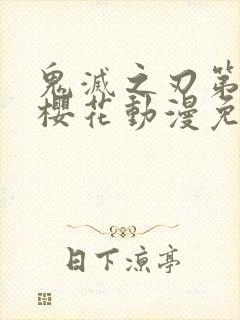 鬼滅之刃第
櫻花動漫免
日下涼亭